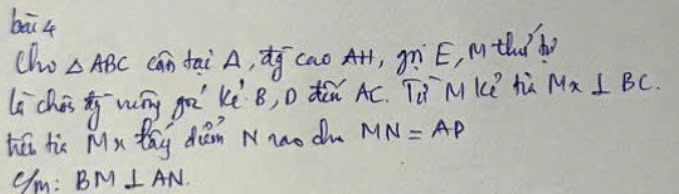 bài 4
Cho △ ABC cân tại A, đg cao AH, gọi E, M thứ tự
là chân đg vuông góc kẻ B, D đến AC. Từ M kẻ tia Mx ⊥ BC.
trên tia Mx lấy điểm N sao cho MN = AD
C/m: BM ⊥ AN.